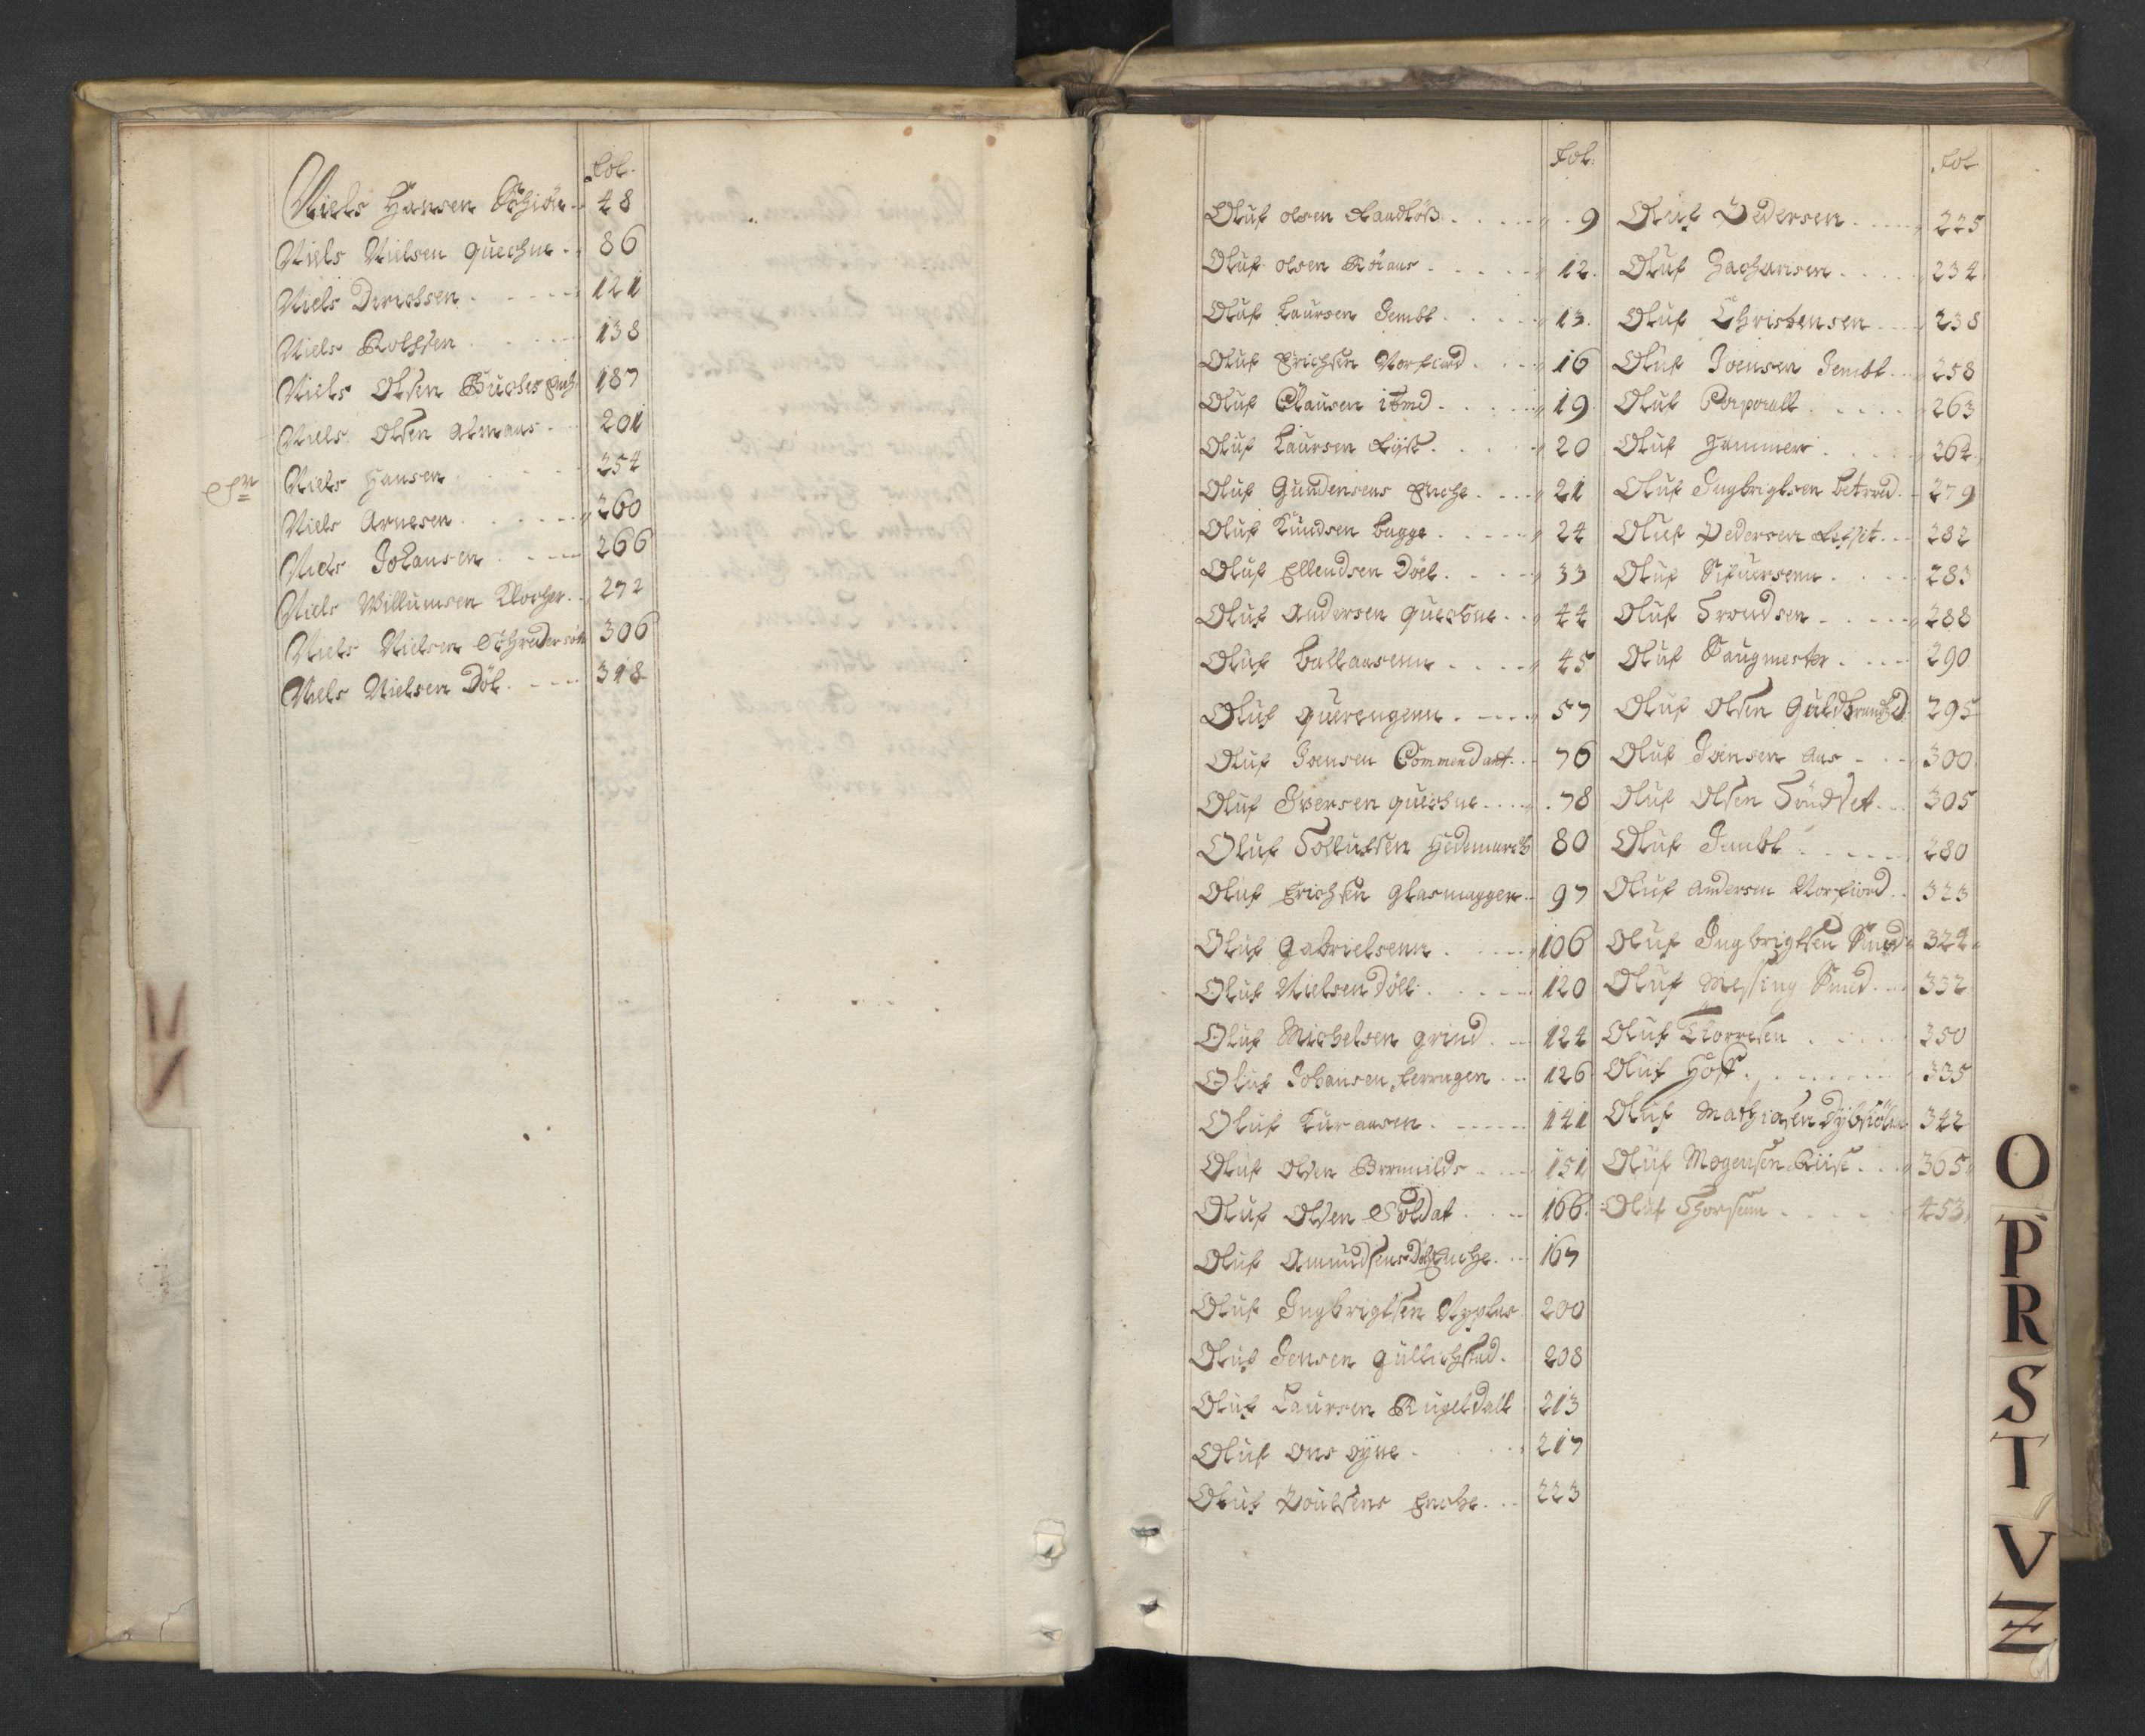 Fol.
Niels Hansen Schiön 48
Niels Nielsen Quechne 86
Niels Dirichsen 121
Niels Rolfsen 138
Niels Olsen 187
Niels Olsen Almaas 201
Niels Hansen 254
Niels Arnesen 260
Niels Johansen 266
Niels Willumsen Klocher 272
Niels Nielsen 306
Niels Nielsen Döl 318
N
Fol:
Oluf Olsen 9
Oluf Olsen Röraas 12.
Oluf Laursen Jembt 13.
Oluf Erichsen Norfiord 16
Oluf Clausen 19
Oluf Laursen 20
Oluf Gundersens Enche 21
Oluf Knudsen Bagge 24
Oluf Ellendsen Döel 33
Oluf Andersen Quechne 44
Oluf Ballansenn 45
Oluf Querengenn 57
Oluf Joensen Commendant 76
Oluf Iversen Quechne 78
Oluf Tollufsen Hedemarch 80
Oluf Erichsen Glasmagger 97
Oluf Gabrielsenn 106
Oluf Nielsen Döll 120
Oluf Michelsen Grind 124
Oluf Johansen 126
Oluf 141
Oluf Olsen 151
Oluf Olsen Soldat 166.
Oluf Amundsens Döl Enche 167
Oluf Ingbrigtsen Nyplas 200
Oluf Jensen Gullichstad 208
Oluf Laursen Rugeldall 213
Oluf Ons Öyne 217
Oluf Poulsens Enche 223
Fol
Oluf Pedersen 225
Oluf Zacharisen 234
Oluf Christensen 238
Oluf Joensen Jembt 258
Oluf Corporall 263
Oluf Hammer 264
Oluf Ingbrigtsen 279
Oluf Pedersen 282
Oluf Sifuersenn 283
Oluf Trondsen 288
Oluf Saugmester 290
Oluf Olsen Guldbrandsd 295
Oluf Joensen Aas 300
Oluf Olsen Trudset 305
Oluf Jembt 280
Oluf Andersen Norfiord 323
Oluf Ingbrigtsen Smed 324
Oluf Messing Smed 332
Oluf Thorresen 350
Oluf Hoff 335
Oluf Mathiasen 342
Oluf Mogensen Riise 365
Oluf 453
O
P
R
S
T
V
Z